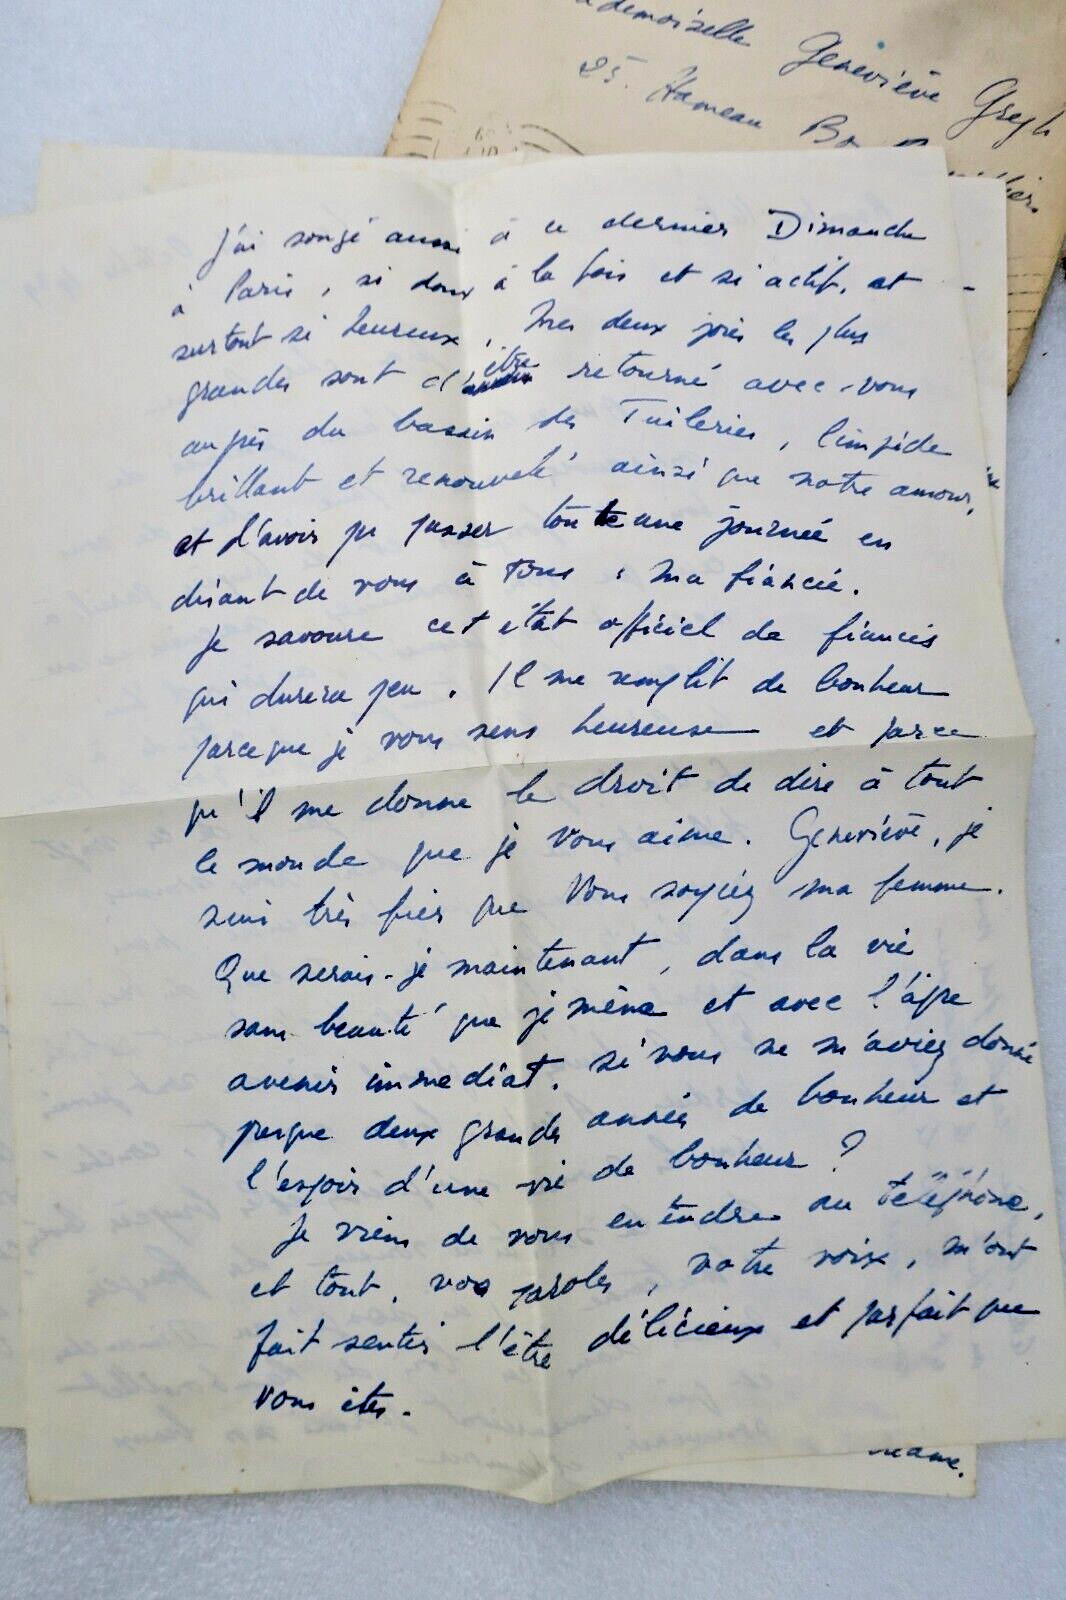 Mademoiselle Geneviève Gregh
25. Hameau Bo
J'ai songé aussi à ce dernier Dimanche
à Paris, si doux à la fois et si actif, et
surtout si heureux. Mes deux joies les plus
grandes sont d'être retourné avec vous
auprès du bassin des Tuileries, limpide
brillant et renouvelé ainsi que notre amour,
et d'avoir pu passer toute une journée en
disant de vous à tous : ma fiancée.
Je savoure cet état officiel de fiancés
qui durera peu. Il me remplit de bonheur
parceque je vous sens heureuse et parce
qu'il me donne le droit de dire à tout
le monde que je vous aime. Geneviève, je
suis très fier que vous soyiez ma femme.
Que serais-je maintenant, dans la vie
sans beauté que je mène et avec l'âpre
avenir immédiat, si vous ne m'aviez donné
presque deux grandes années de bonheur et
l'espoir d'une vie de bonheur ?
Je viens de vous entendre au téléphone,
et tout, vos paroles, votre voix, m'ont
fait sentir l'être délicieux et parfait que
vous êtes.